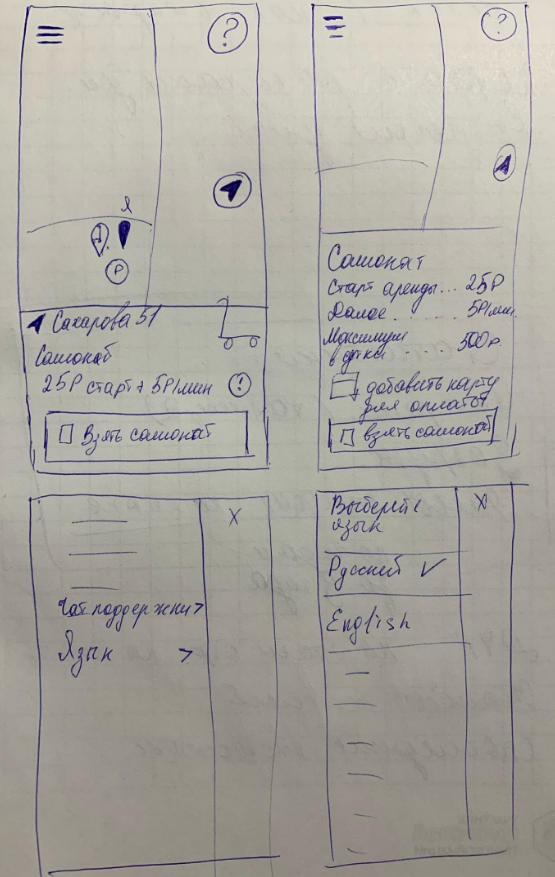 ?
Я
P
Сахарова 51
Самокат
25Р старт + 5Р/мин !
Взять самокат
?
Самокат
Старт аренды... 25Р
Далее....... 5Р/мин.
Максимум
в сутки 500р.
добавить карту
для оплаты
взять самокат
X
Чат поддержки >
Язык >
Выберите
язык
X
Русский ✓
English